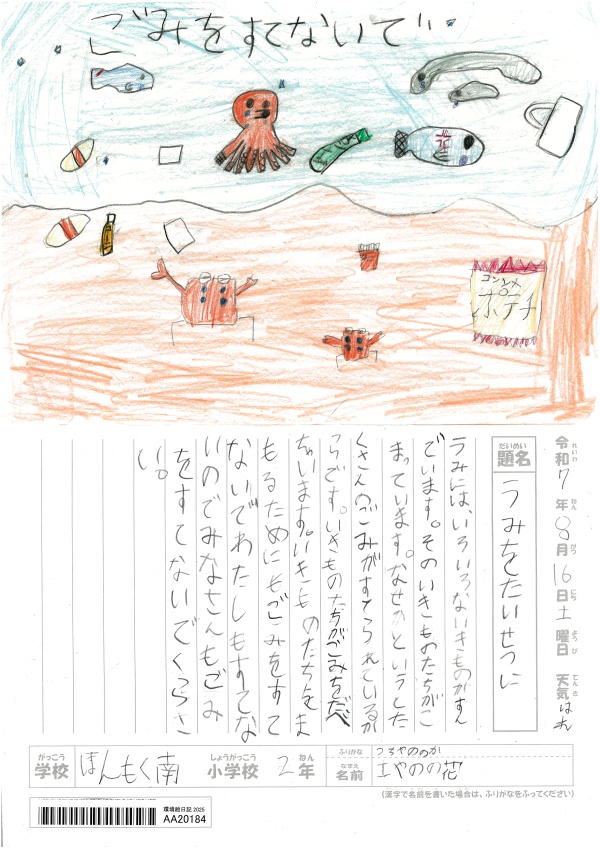 ごみをすてないで
コンソメ
ポテチ
令和7年8月16日土曜日 天気はれ
れいわ ねん がつ にち よう び てん き
だいめい
題名 うみをたいせつに
うみには、いろいろないきものがすん
でいます。そのいきものたちがこ
まっています。なぜかというとた
くさんのごみがすてられているか
らです。いきものたちがごみをたべ
ちゃいます。いきものたちをま
もるためにもごみをすて
ないでわたしもすてな
いのでみなさんもごみ
をすてないでくださ
い。
がっこう しょうがっこう ねん
学校 ほんもく南 小学校 2年
ふりがな つちやののか
なまえ
名前 土やのの花
(漢字で名前を書いた場合は、ふりがなをふってください)
環境絵日記 2025
AA20184